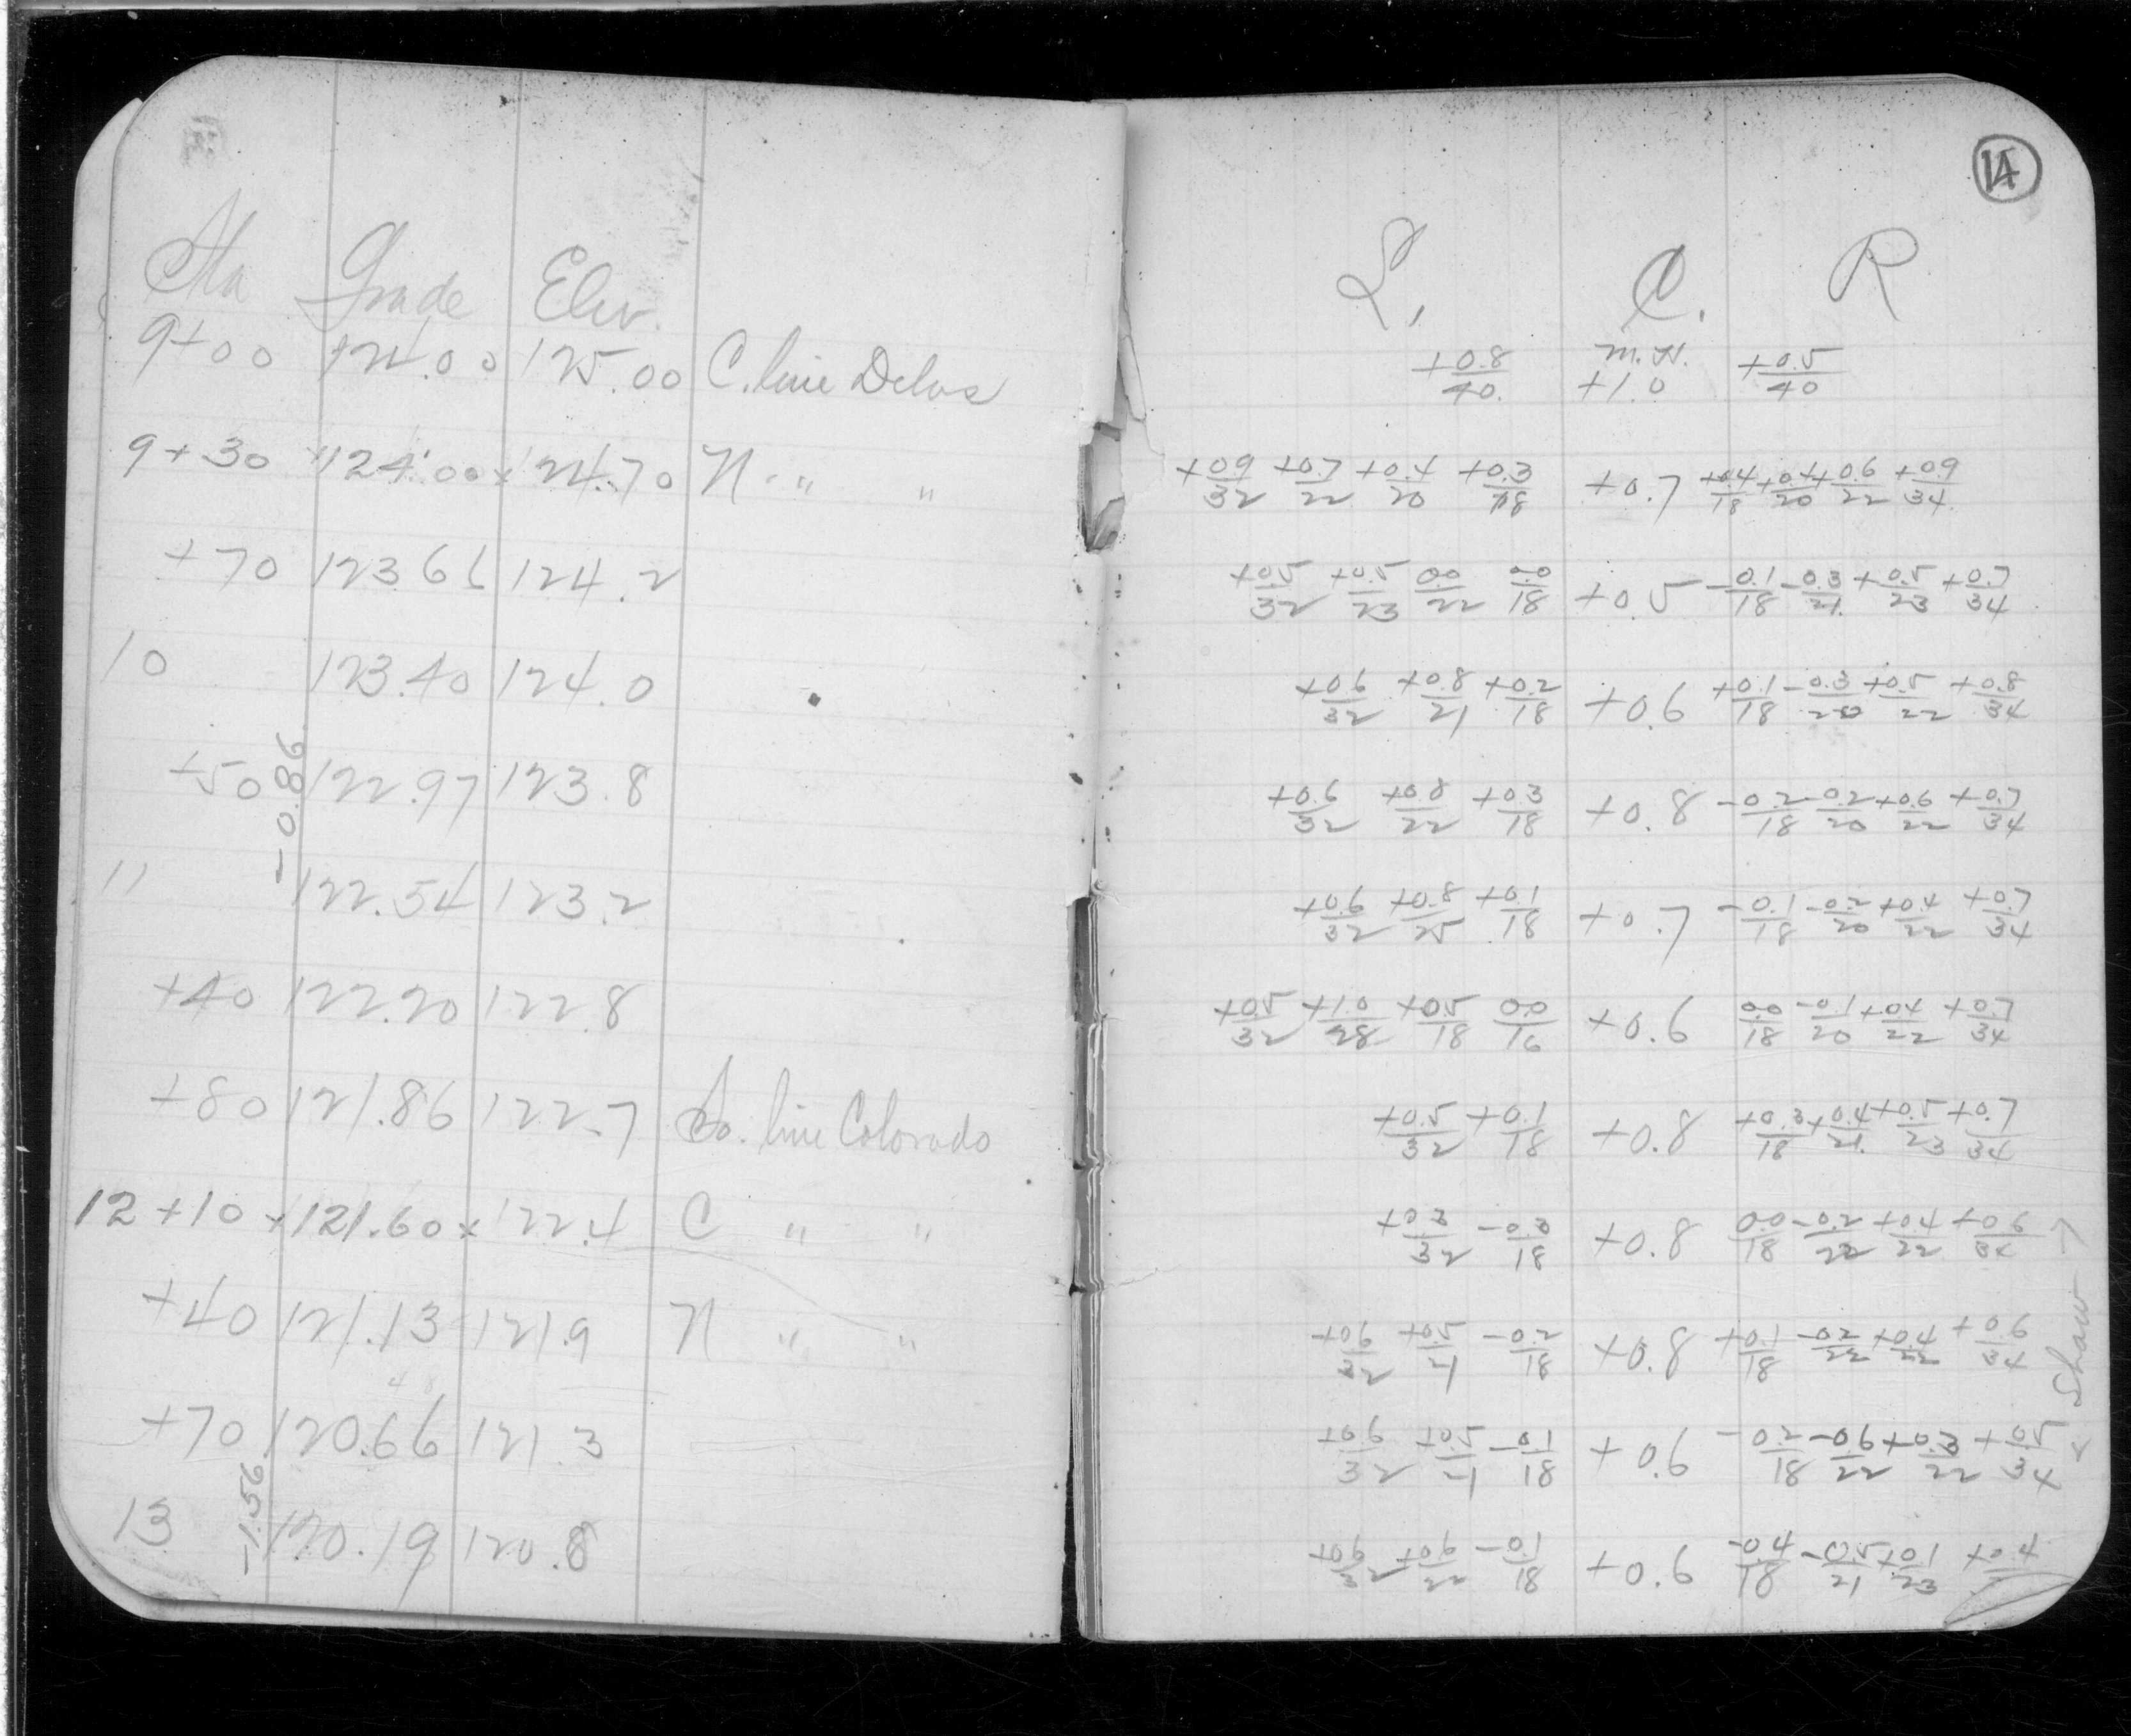 Sta Grade Elev.
9+00 124.00 125.00 C. line Delos
9+30 124.00 124.70 N " "
+70 123.66 124.2
10 123.40 124.0
+50 122.97 123.8
-0.86
11 122.54 123.2
+40 122.20 122.8
+80 121.86 122.7 So. line Colorado
12+10 121.60 122.4 C " "
+40 121.13 121.9 N " "
+70 120.66 121.3
-1.56
13 120.19 120.8
14
L. C. R
+0.8/40. +1.0 +0.5/40
+0.9/32 +0.7/22 +0.4/20 +0.3/18 +0.7 +0.4/18 +0.4/20 +0.6/22 +0.9/34
+0.5/32 +0.5/23 0.0/22 0.0/18 +0.5 -0.1/18 -0.3/21. +0.5/23 +0.7/34
+0.6/32 +0.8/21 +0.2/18 +0.6 +0.1/18 -0.3/20 +0.5/22 +0.8/34
+0.6/32 +0.8/22 +0.3/18 +0.8 -0.2/18 -0.2/20 +0.6/22 +0.7/34
+0.6/32 +0.8/25 +0.1/18 +0.7 -0.1/18 -0.2/20 +0.4/22 +0.7/34
+0.5/32 +1.0/28 +0.5/18 0.0/16 +0.6 0.0/18 -0.1/20 +0.4/22 +0.7/34
+0.5/32 +0.1/18 +0.8 +0.3/18 +0.4/21. +0.5/23 +0.7/34
+0.3/32 -0.3/18 +0.8 0.0/18 -0.2/22 +0.4/22 +0.6/34
+0.6/32 +0.5/21 -0.2/18 +0.8 +0.1/18 -0.2/22 +0.4/22 +0.6/34
+0.6/32 +0.5/21 -0.1/18 +0.6 -0.2/18 -0.6/22 +0.3/22 +0.5/34
+0.6/32 +0.6/22 -0.1/18 +0.6 -0.4/18 -0.5/21 +0.1/23 +0.4
Shaw